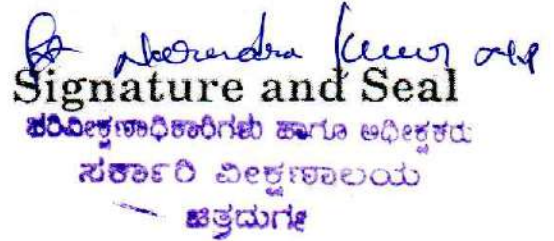 Narendra Kumar
Signature and Seal
ಪರಿವೀಕ್ಷಣಾಧಿಕಾರಿಗಳು ಹಾಗೂ ಅಧೀಕ್ಷಕರು
ಸರ್ಕಾರಿ ವೀಕ್ಷಣಾಲಯ
ಚಿತ್ರದುರ್ಗ